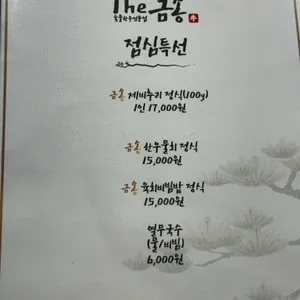 The 금송
점심특선
금송 제비추리 정식(100g)
1인 17,000원
금송 한우물회 정식
15,000원
금송 육회비빔밥 정식
15,000원
열무국수
(물/비빔)
6,000원